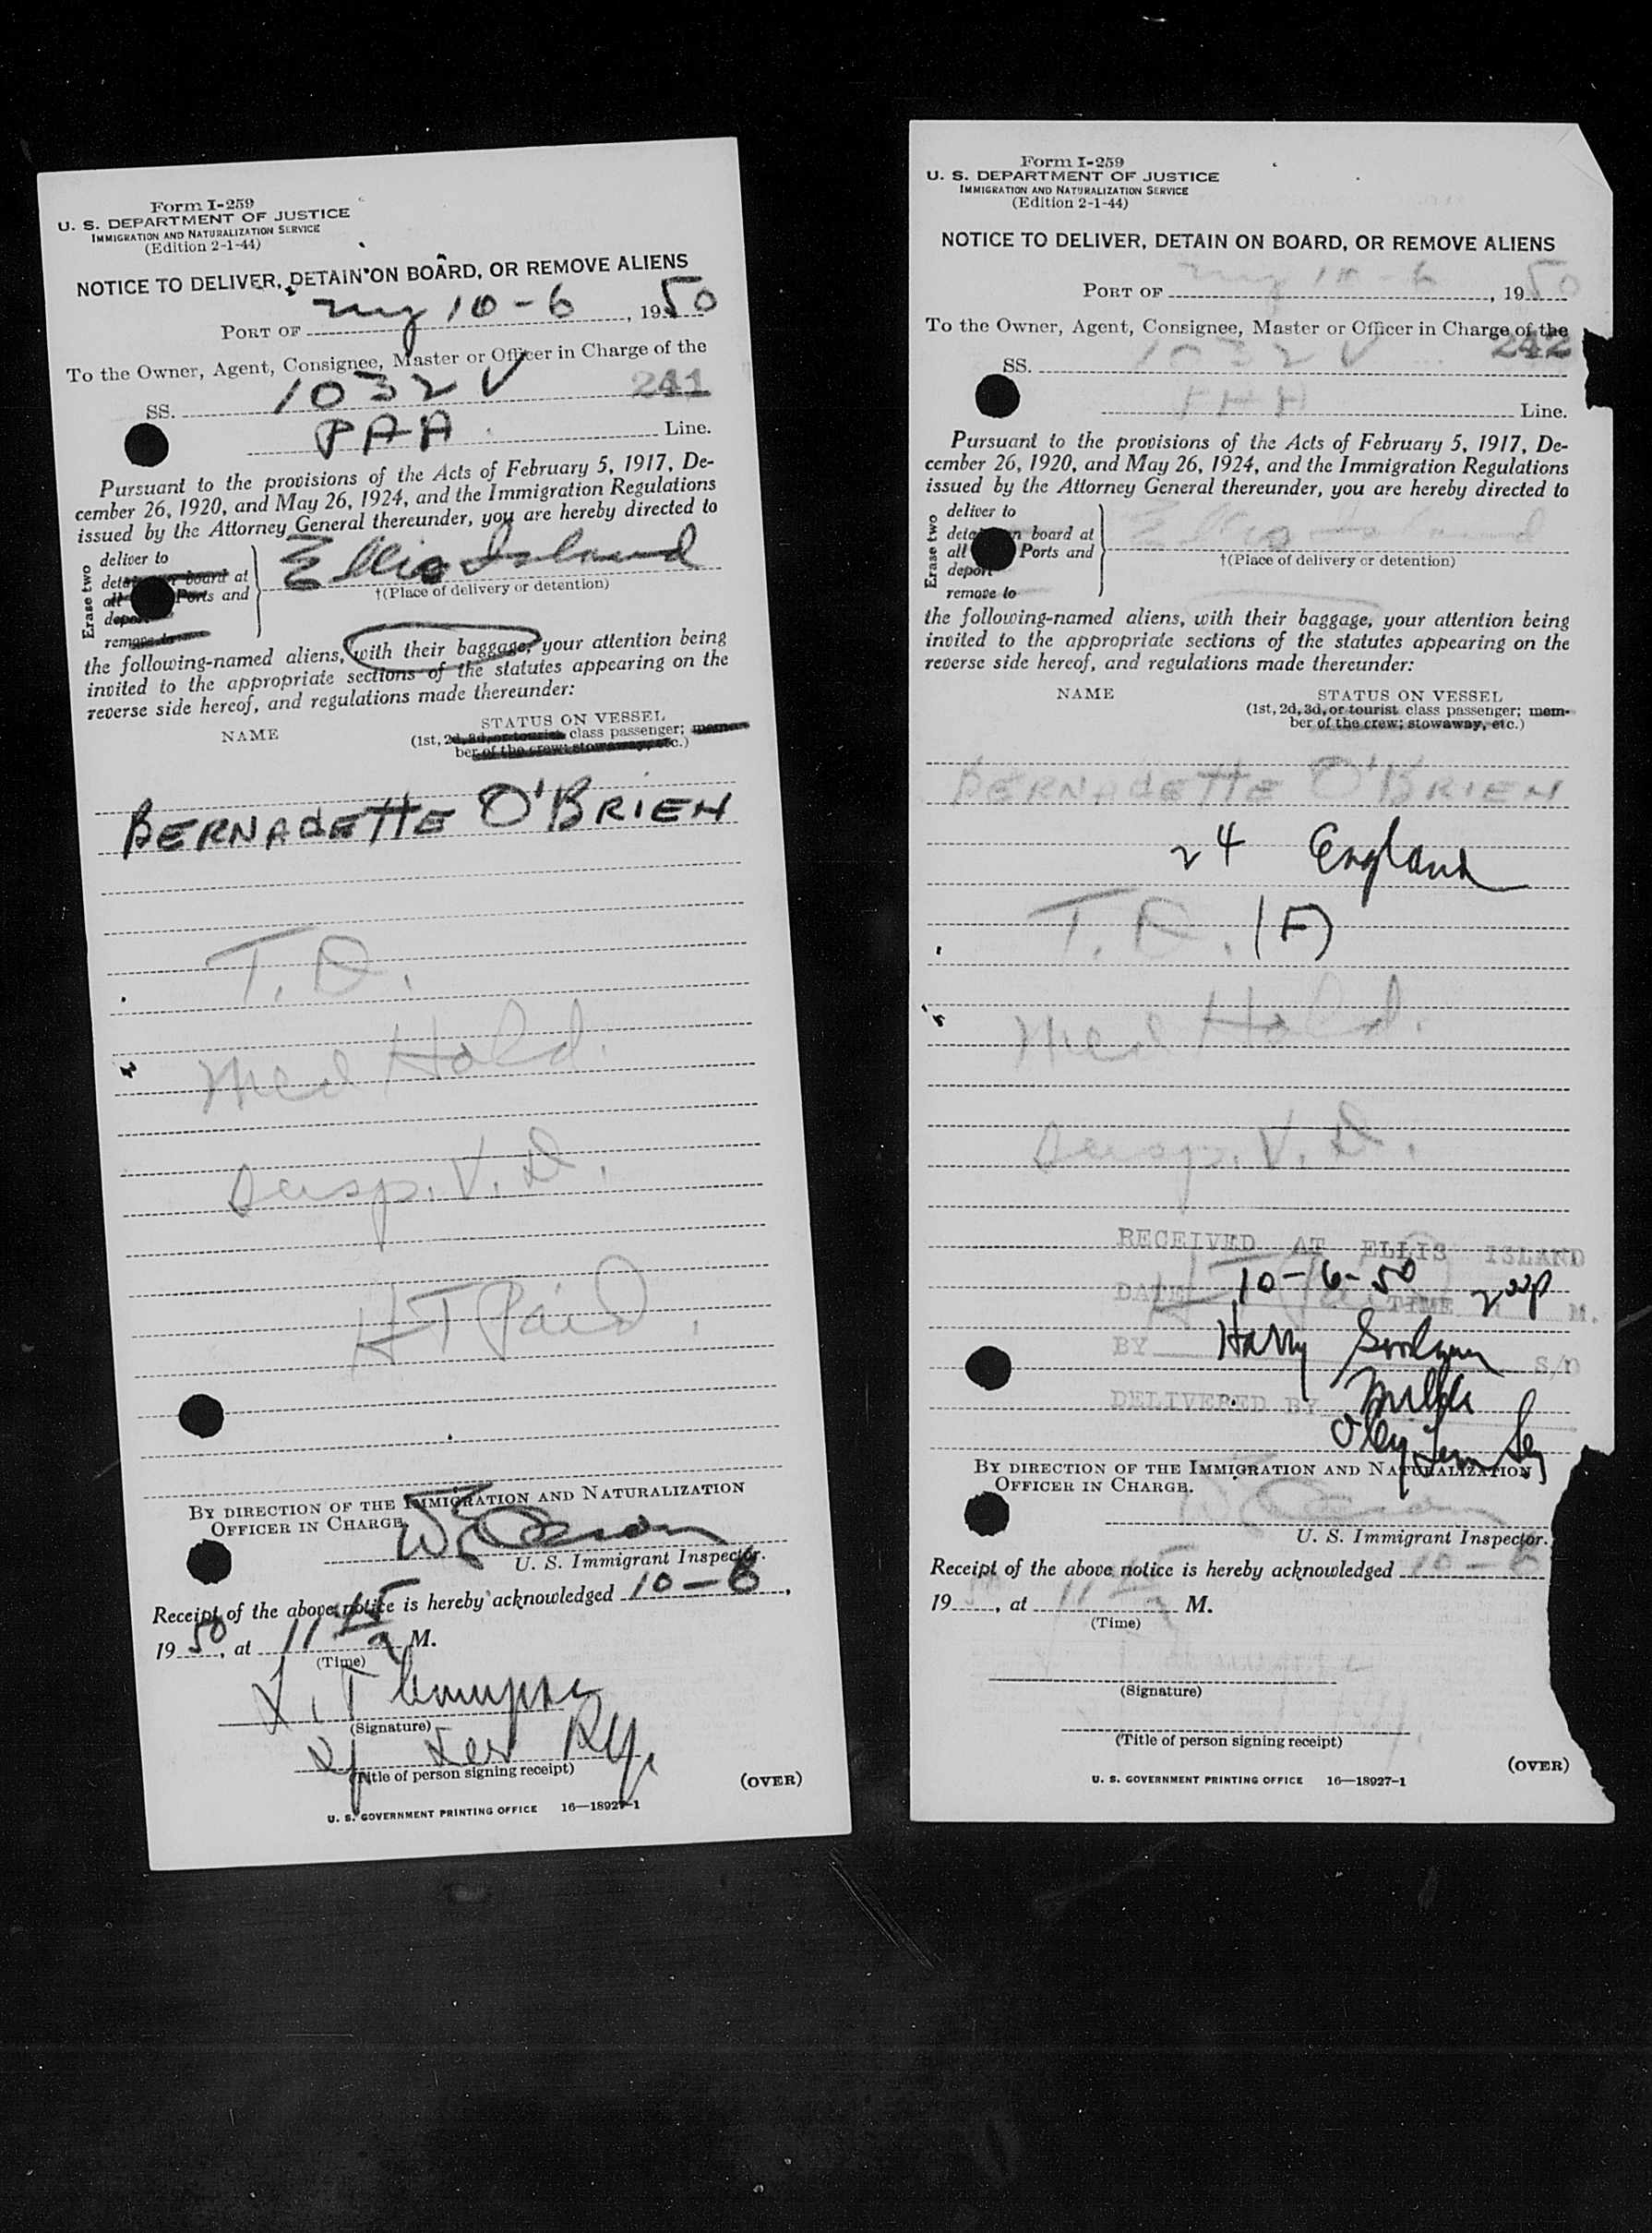 Form I-259
U. S. DEPARTMENT OF JUSTICE
IMMIGRATION AND NATURALIZATION SERVICE
(Edition 2-1-44)
NOTICE TO DELIVER, DETAIN ON BOARD, OR REMOVE ALIENS
PORT OF ny 10-6, 1950
To the Owner, Agent, Consignee, Master or Officer in Charge of the
SS. 1032 ✓ 241
PAA Line.
Pursuant to the provisions of the Acts of February 5, 1917, De-
cember 26, 1920, and May 26, 1924, and the Immigration Regulations
issued by the Attorney General thereunder, you are hereby directed to
Erase two
deliver to
board at
all Ports and
remove to
Ellis Island
†(Place of delivery or detention)
the following-named aliens, with their baggage, your attention being
invited to the appropriate sections of the statutes appearing on the
reverse side hereof, and regulations made thereunder:
NAME STATUS ON VESSEL
(1st, 2d, 3d, or tourist class passenger; mem-
ber of the crew; stowaway, etc.)
BERNADETTE O'BRIEN
T. D.
Med Hold.
Susp. V. D.
HT Paid.
BY DIRECTION OF THE IMMIGRATION AND NATURALIZATION
OFFICER IN CHARGE.
U. S. Immigrant Inspector.
Receipt of the above notice is hereby acknowledged 10-6,
1950, at 11 15 a M.
(Time)
(Signature)
(Title of person signing receipt)
(OVER)
U. S. GOVERNMENT PRINTING OFFICE 16—18927-1
Form I-259
U. S. DEPARTMENT OF JUSTICE
IMMIGRATION AND NATURALIZATION SERVICE
(Edition 2-1-44)
NOTICE TO DELIVER, DETAIN ON BOARD, OR REMOVE ALIENS
PORT OF ny 10-6, 1950
To the Owner, Agent, Consignee, Master or Officer in Charge of the
SS. 1032 ✓ 242
PAA Line.
Pursuant to the provisions of the Acts of February 5, 1917, De-
cember 26, 1920, and May 26, 1924, and the Immigration Regulations
issued by the Attorney General thereunder, you are hereby directed to
Erase two
deliver to
board at
all Ports and
deport
remove to
Ellis Island
†(Place of delivery or detention)
the following-named aliens, with their baggage, your attention being
invited to the appropriate sections of the statutes appearing on the
reverse side hereof, and regulations made thereunder:
NAME STATUS ON VESSEL
(1st, 2d, 3d, or tourist class passenger; mem-
ber of the crew; stowaway, etc.)
BERNADETTE O'BRIEN
24 England
T. D. (F)
Med Hold.
Susp. V. D.
HT Paid
RECEIVED AT ELLIS ISLAND
DATE 10-6-50 TIME 2 00 p M.
BY Harry S/O
DELIVERED BY
BY DIRECTION OF THE IMMIGRATION AND NATURALIZATION
OFFICER IN CHARGE.
U. S. Immigrant Inspector.
Receipt of the above notice is hereby acknowledged 10-6
1950, at 11 15 a M.
(Time)
(Signature)
(Title of person signing receipt)
(OVER)
U. S. GOVERNMENT PRINTING OFFICE 16—18927-1